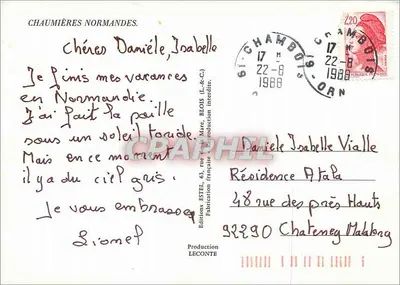 CHAUMIÈRES NORMANDES.
Chères Danièle, Isabelle
Je finis mes vacances
en Normandie.
J'ai fait la paille
sous un soleil torride.
Mais en ce moment
il y a du ciel gris.
Je vous embrasse
Lionel
Editions ESTEL, 43, rue Mère, BLOIS (L.-&-C.)
Fabrication française - Reproduction interdite.
Production
LECONTE
61-CHAMBOIS
17 H
22-8
1988
61-CHAMBOIS
17 H
22-8
1988
ORN
2,20
CPAPHIL
Danièle Isabelle Vialle
Résidence Atala
48 rue des près Hauts
92290 Chatenay Malabry